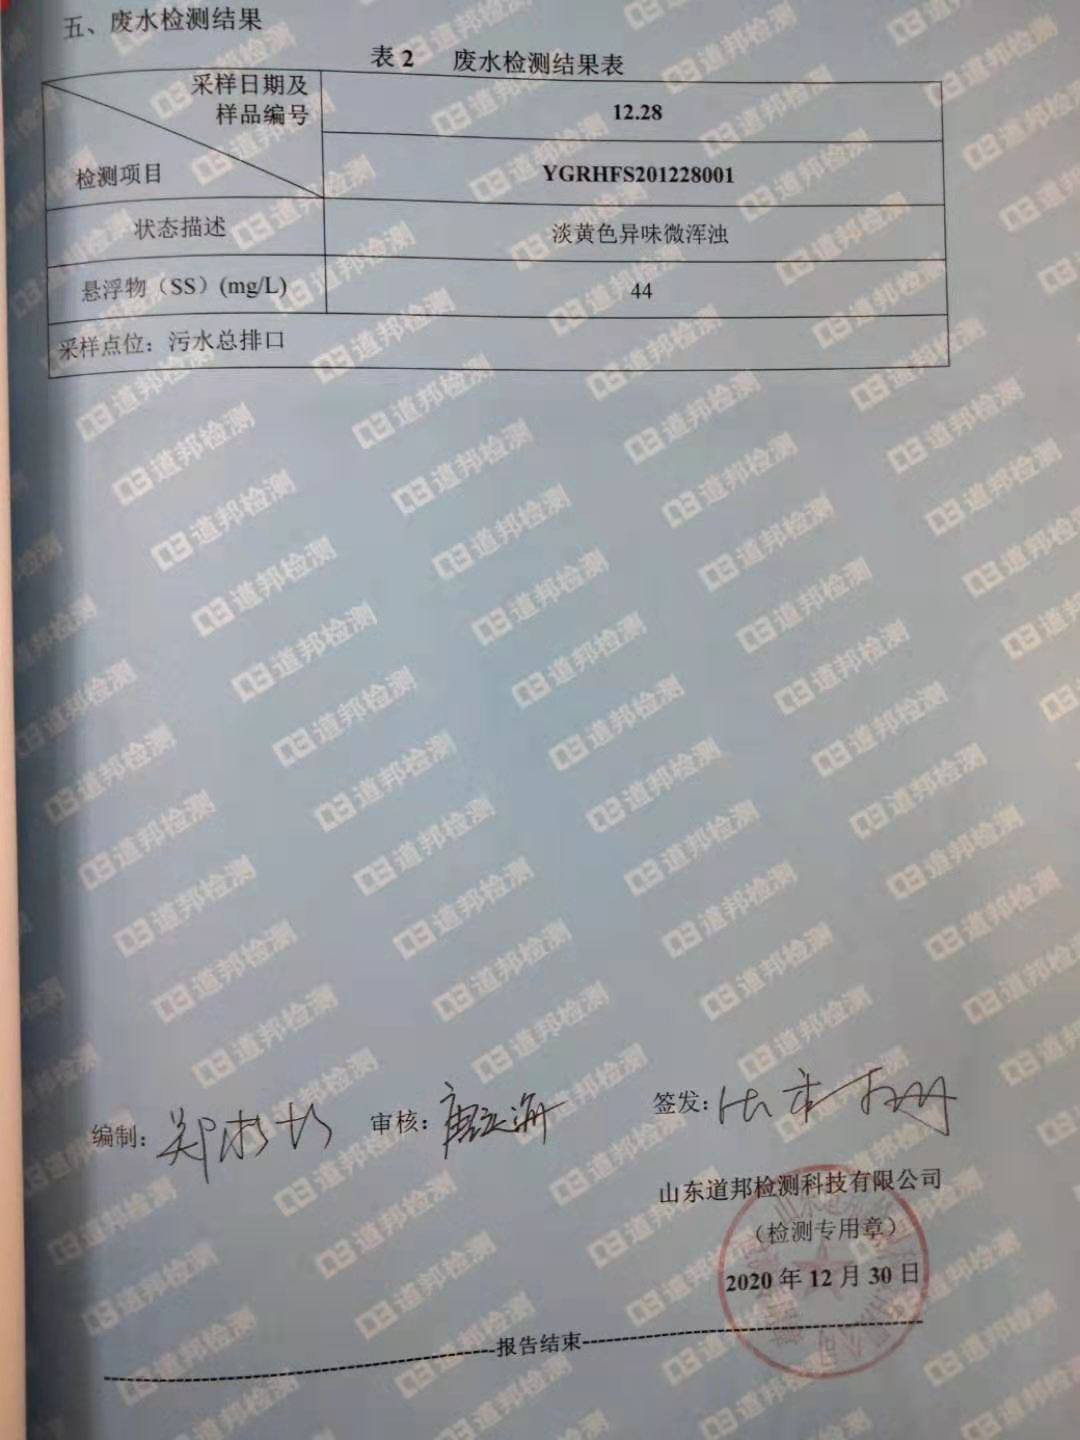 五、废水检测结果
表 2 废水检测结果表
采样日期及
样品编号
检测项目
12.28
YGRHFS201228001
状态描述
淡黄色异味微浑浊
悬浮物（SS）(mg/L)
44
采样点位：污水总排口
编制：
审核：
签发：
山东道邦检测科技有限公司
（检测专用章）
2020 年 12 月 30 日
报告结束
道邦检测